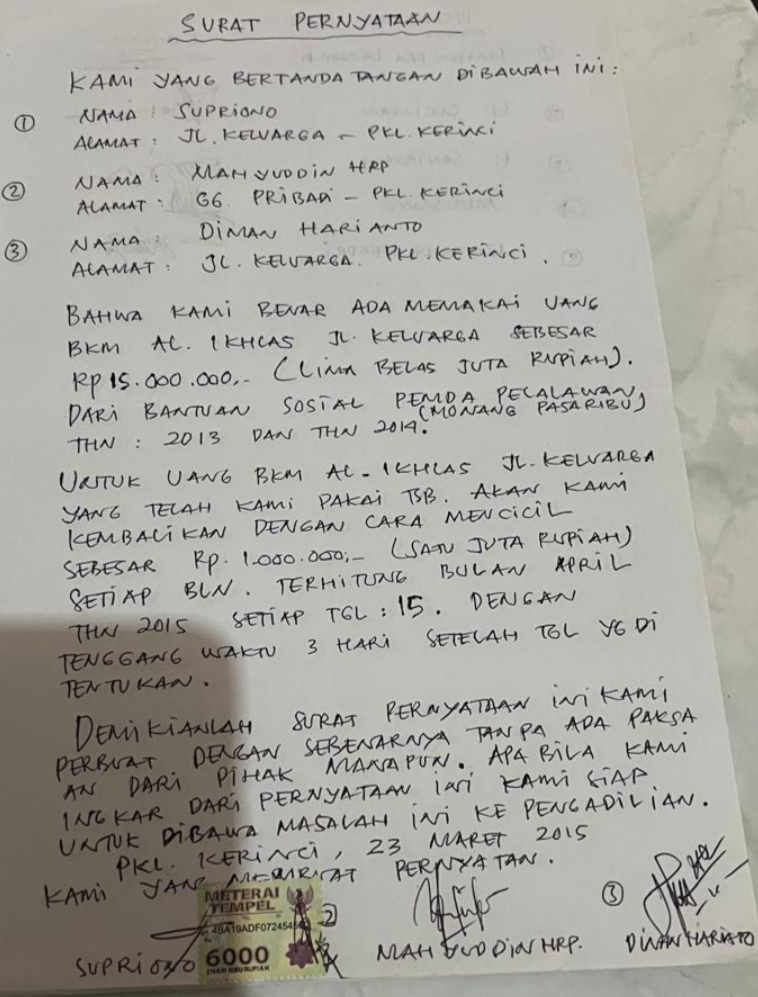 SURAT PERNYATAAN
KAMI YANG BERTANDA TANGAN DIBAWAH INI :
① NAMA : SUPRIONO
ALAMAT : JL. KELUARGA - PKL. KERINCI
② NAMA : MAHYUDDIN HRP
ALAMAT : GG PRIBADI - PKL. KERINCI
③ NAMA : DIMAN HARIANTO
ALAMAT : JL. KELUARGA. PKL. KERINCI.
BAHWA KAMI BENAR ADA MEMAKAI UANG
BKM AL. IKHLAS JL. KELUARGA SEBESAR
RP 15.000.000,- (LIMA BELAS JUTA RUPIAH).
DARI BANTUAN SOSIAL PEMDA PELALAWAN,
(MONANG PASARIBU)
THN : 2013 DAN THN 2014.
UNTUK UANG BKM AL-IKHLAS JL. KELUARGA
YANG TELAH KAMI PAKAI TSB. AKAN KAMI
KEMBALIKAN DENGAN CARA MENCICIL
SEBESAR Rp. 1.000.000,- (SATU JUTA RUPIAH)
SETIAP BLN. TERHITUNG BULAN APRIL
THN 2015 SETIAP TGL : 15. DENGAN
TENGGANG WAKTU 3 HARI SETELAH TGL YG DI
TENTUKAN.
DEMIKIANLAH SURAT PERNYATAAN INI KAMI
PERBUAT DENGAN SEBENARNYA TANPA ADA PAKSA
AN DARI PIHAK MANAPUN. APA BILA KAMI
INGKAR DARI PERNYATAAN INI KAMI SIAP
UNTUK DIBAWA MASALAH INI KE PENGADILIAN.
PKL. KERINCI, 23 MARET 2015
KAMI YANG MEMBUAT PERNYATAN.
METERAI
TEMPEL
6000
ENAM RIBU RUPIAH
②
③
SUPRIONO
MAHYUDDIN HRP.
DIMAN HARIATO